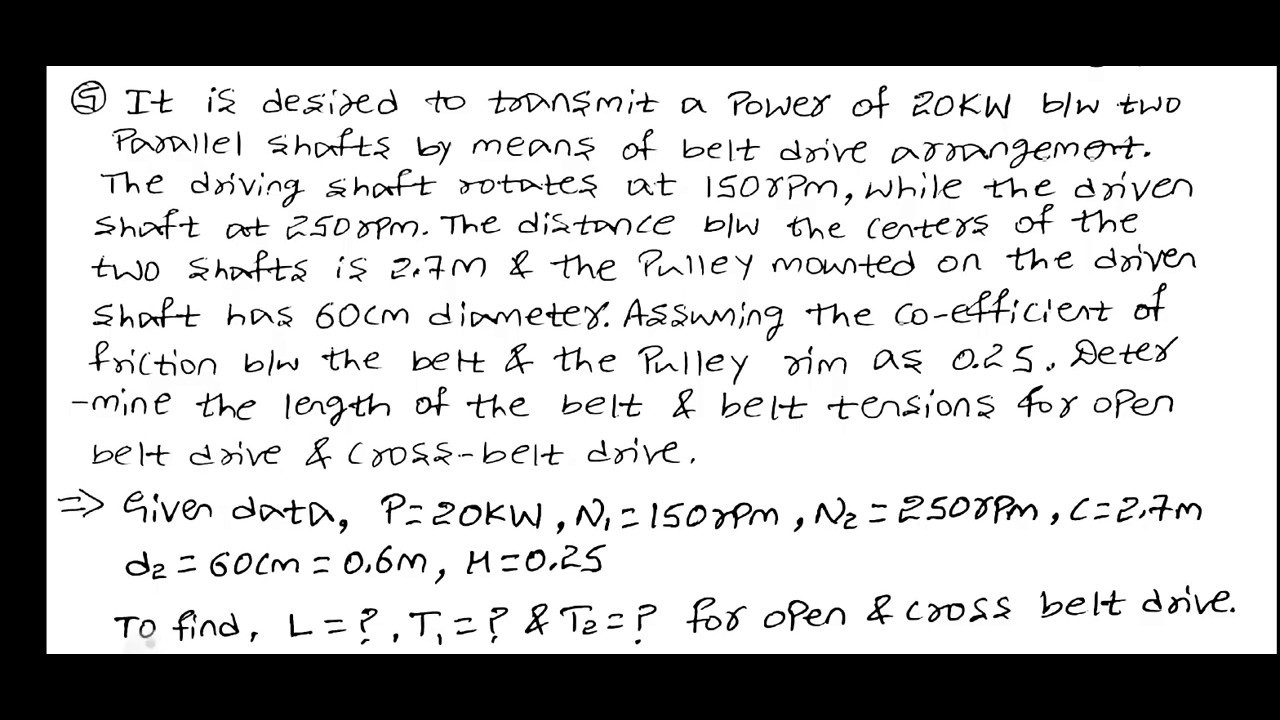 ⑤ It is desired to transmit a Power of 20KW b/w two
Parallel shafts by means of belt drive arrangement.
The driving shaft rotates at 150rpm, while the driven
shaft at 250rpm. The distance b/w the centers of the
two shafts is 2.7M & the Pulley mounted on the driven
shaft has 60cm diameter. Assuming the co-efficient of
friction b/w the belt & the Pulley rim as 0.25. Deter
-mine the length of the belt & belt tensions for open
belt drive & cross-belt drive.
⇒ Given data, P=20KW, N₁=150rpm, N₂=250rpm, C=2.7m
d₂=60cm=0.6m, μ=0.25
To find, L=?, T₁=? & T₂=? for open & cross belt drive.